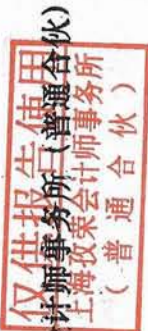 仅供报告使用
计师事务所(普通合伙)
上海孜荣会计师事务所
(普通合伙)